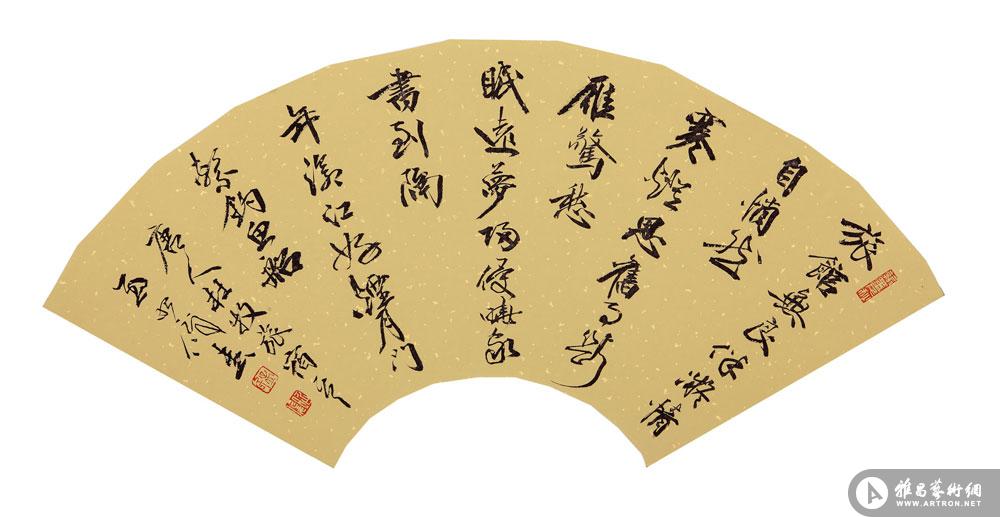 旅館無良伴凝情
自悄然
寒燈思舊事斷
雁驚愁
眠遠夢歸侵曉家
書到隔
年江好煙月門
繫釣魚船
唐人杜牧旅宿
雅昌藝術網
WWW.ARTRON.NET